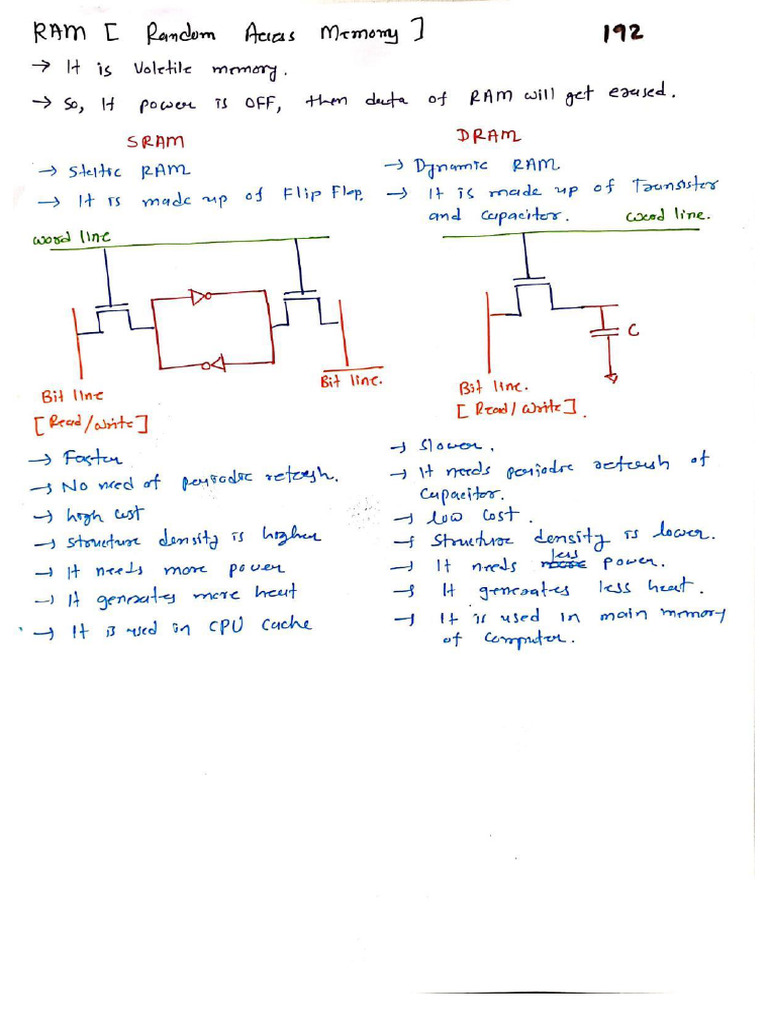 RAM [ Random Access Memory ]
192
→ It is Voletile memory.
→ So, If power is OFF, then data of RAM will get erased.
SRAM
→ Static RAM
→ It is made up of Flip Flop.
word line
Bit line
[Read/write]
Bit line.
→ Faster
→ No need of periodic refresh.
→ high cost
→ structure density is higher
→ It needs more power
→ It generates more heat
→ It is used in CPU Cache
DRAM
→ Dynamic RAM
→ It is made up of Transistor
and capacitor.
word line.
C
Bit line.
[Read/write].
→ Slower.
→ It needs periodic refresh of
capacitor.
→ low cost.
→ structure density is lower.
→ It needs less power.
→ It generates less heat.
→ It is used in main memory
of computer.